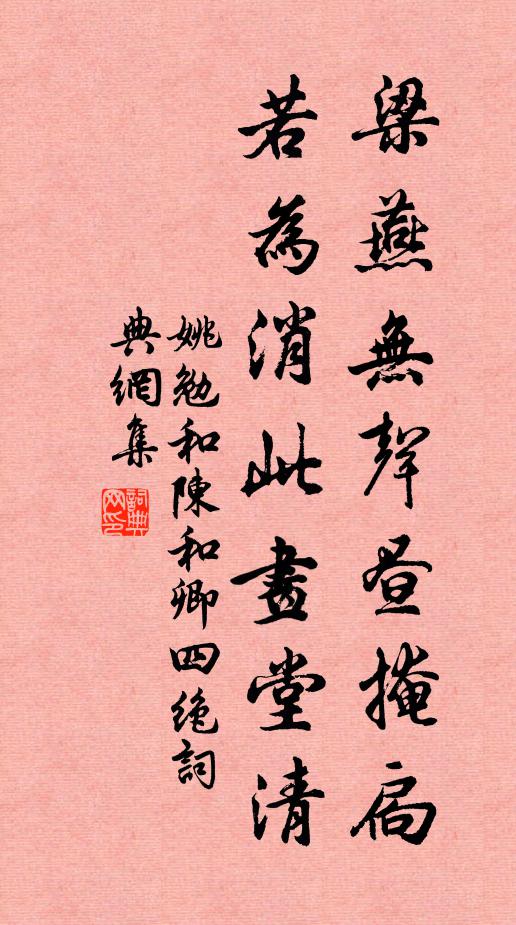 梁燕無聲昼掩扃
若為消此畫堂清
姚勉和陳和卿四絕詞
典網集
詞典网印